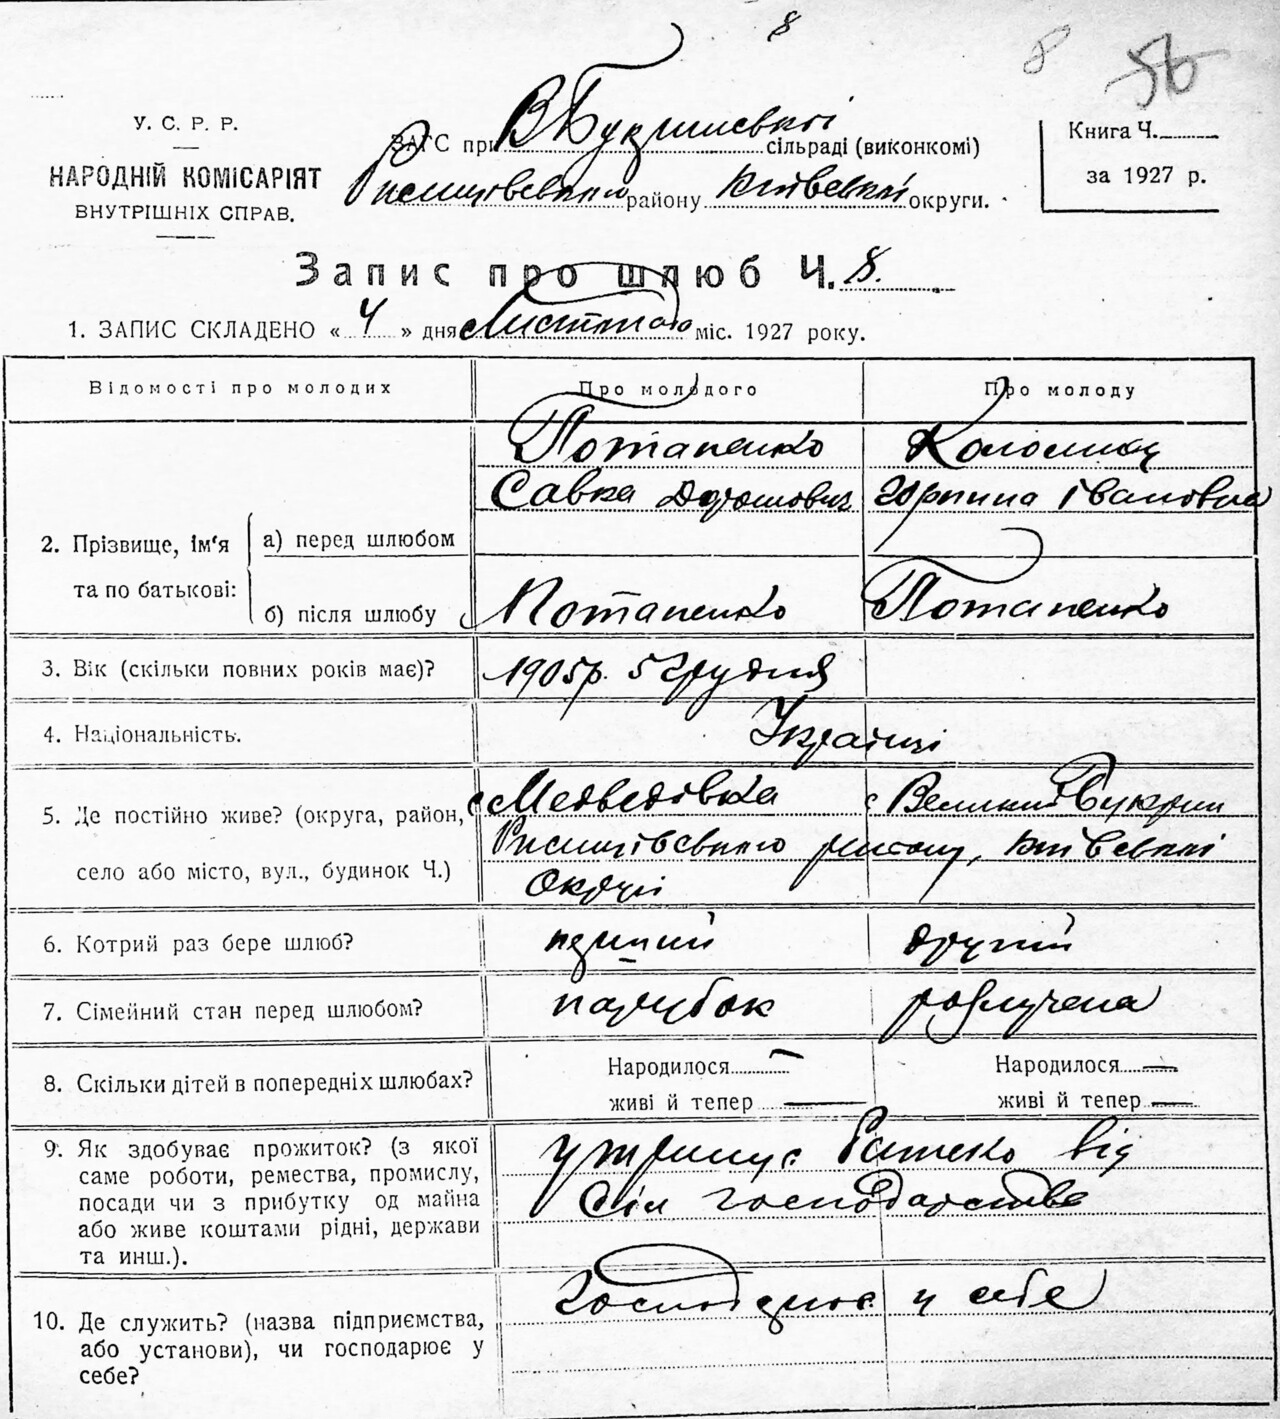 8
8 56
У. С. Р. Р.
НАРОДНІЙ КОМІСАРІЯТ
ВНУТРІШНІХ СПРАВ.
ЗАГС при В Букринській сільраді (виконкомі)
району Київської округи.
Книга Ч.
за 1927 р.
Запис про шлюб Ч. 8.
1. ЗАПИС СКЛАДЕНО « 4 » дня Листопаду міс. 1927 року.
Відомості про молодих Про молодого Про молоду
Потапенко Коломиєць
Савка Дорошович Горпина Івановна
2. Прізвище, ім'я та по батькові:
а) перед шлюбом
б) після шлюбу Потапенко Потапенко
3. Вік (скільки повних років має)? 1905р. 5 Грудня
4. Національність. Українці
5. Де постійно живе? (округа, район, село або місто, вул., будинок Ч.)
с Медведівка с Великий Букрин
району, Київської
Округи
6. Котрий раз бере шлюб? другий
7. Сімейний стан перед шлюбом? парубок розлучена
8. Скільки дітей в попередніх шлюбах? Народилося — Народилося —
живі й тепер — живі й тепер —
9. Як здобуває прожиток? (з якої
саме роботи, ремества, промислу,
посади чи з прибутку од майна
або живе коштами рідні, держави
та инш.).
утримує батько від
Сіл господарства
10. Де служить? (назва підприємства,
або установи), чи господарює у
себе?
Господарює у себе